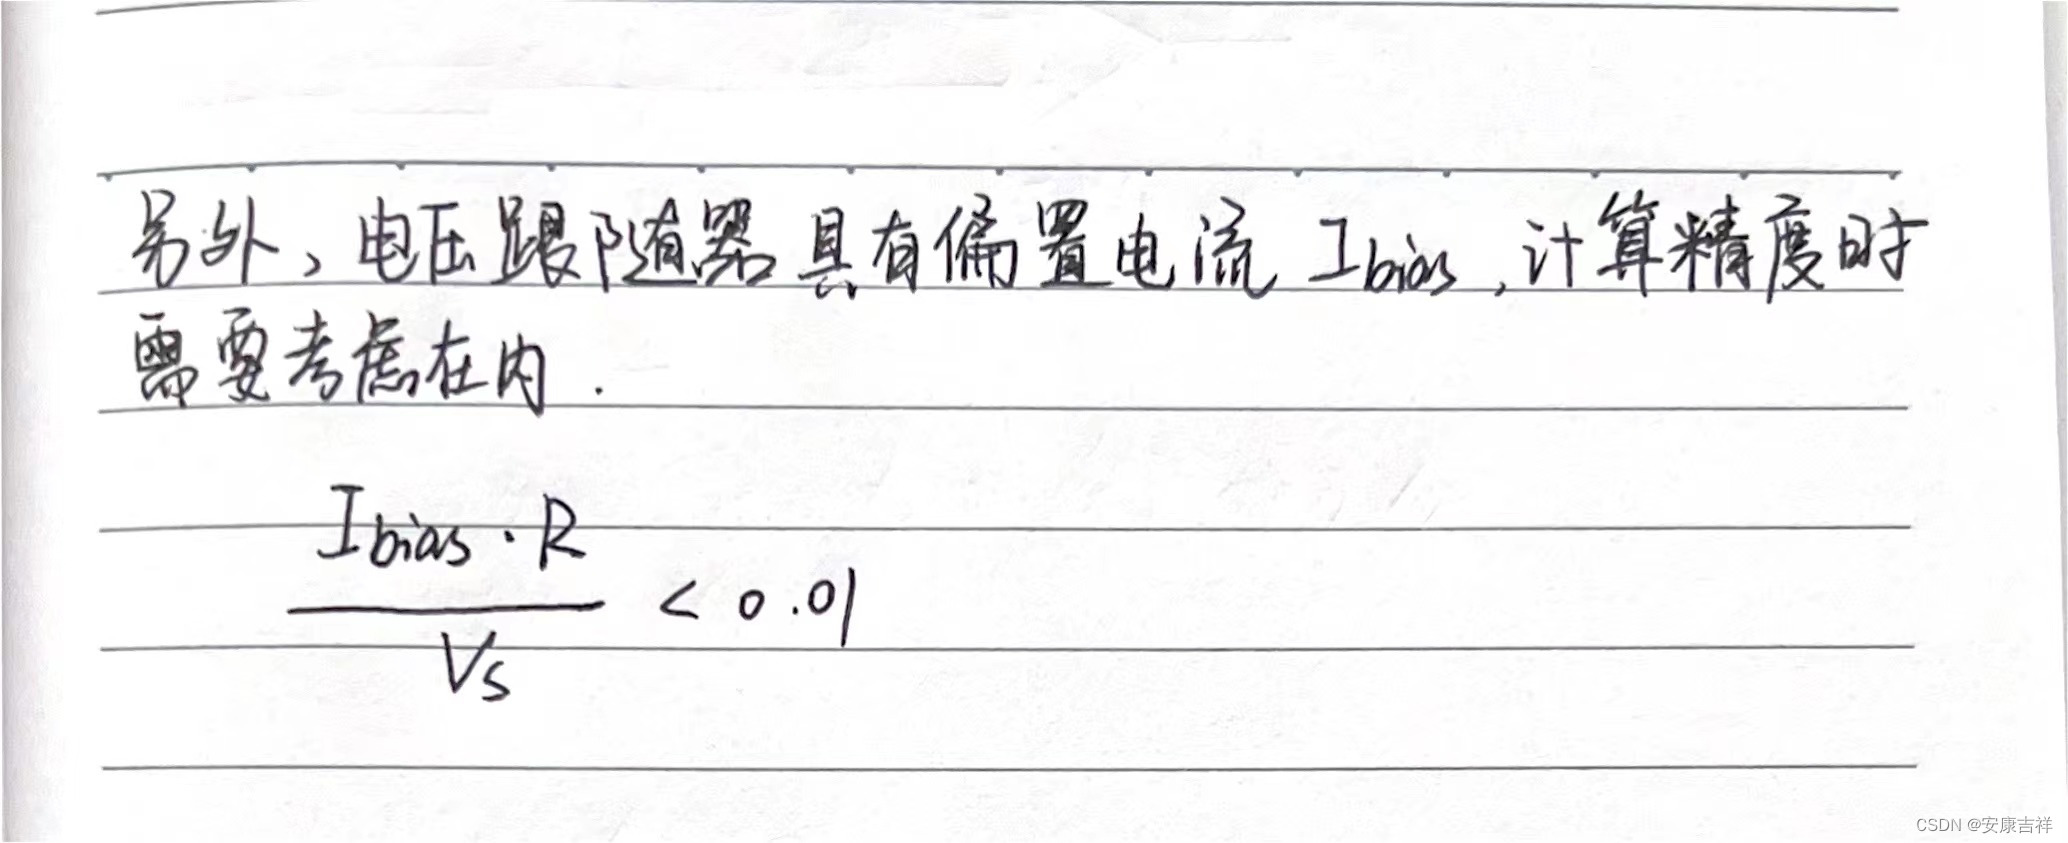 另外，电压跟随器具有偏置电流 Ibias，计算精度时
需要考虑在内.
Ibias · R
< 0.01
Vs
CSDN @安康吉祥